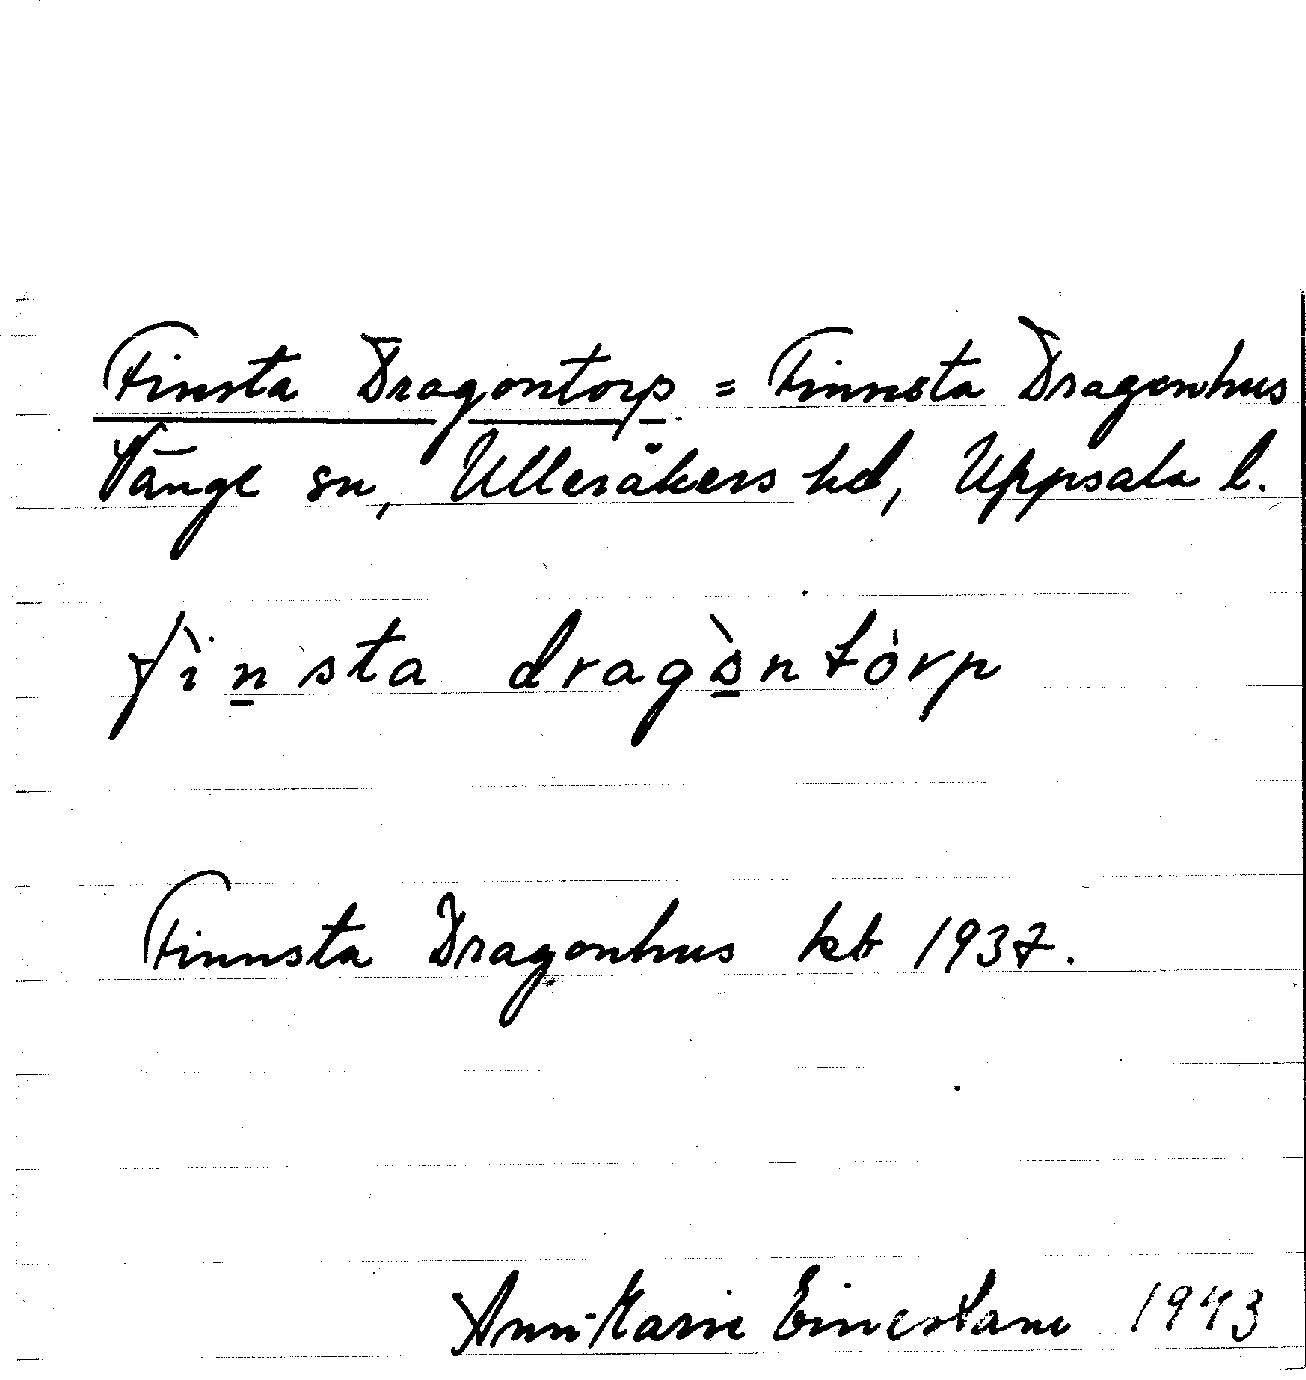 Finsta Dragontorp = Finnsta Dragonhus
Vänge sn, Ulleråkers hd, Uppsala l.
finsta dragòntòrp
Finnsta Dragonhus kb 1937.
Ann-Marie 1943